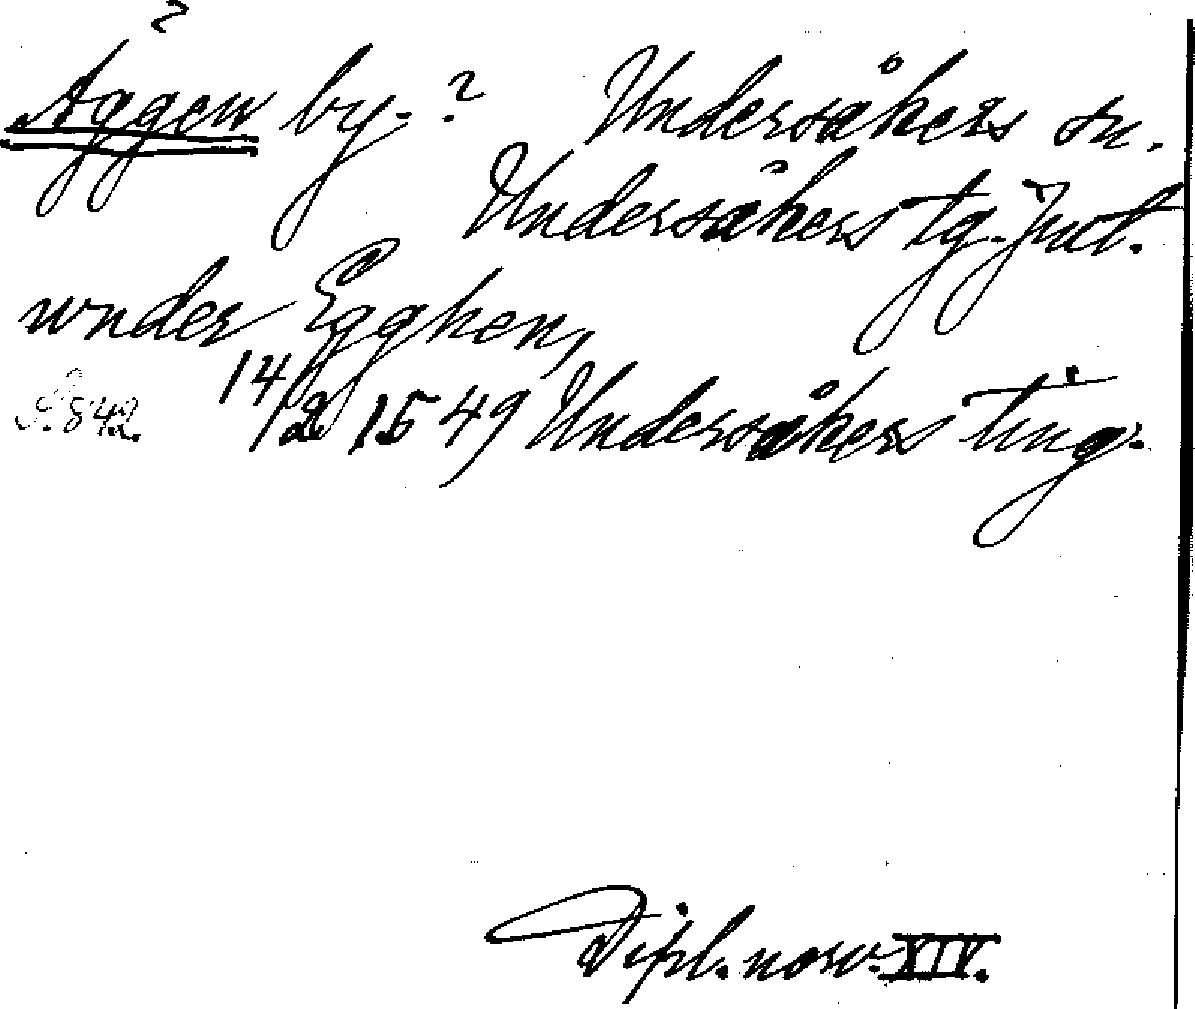 ?
Äggen by. ? Undersåkers sn.
Undersåkers tg. Jmtl.
wnder Egghen,
S. 842. 14/2 1549 Undersåkers ting.
Dipl. norv. XIV.